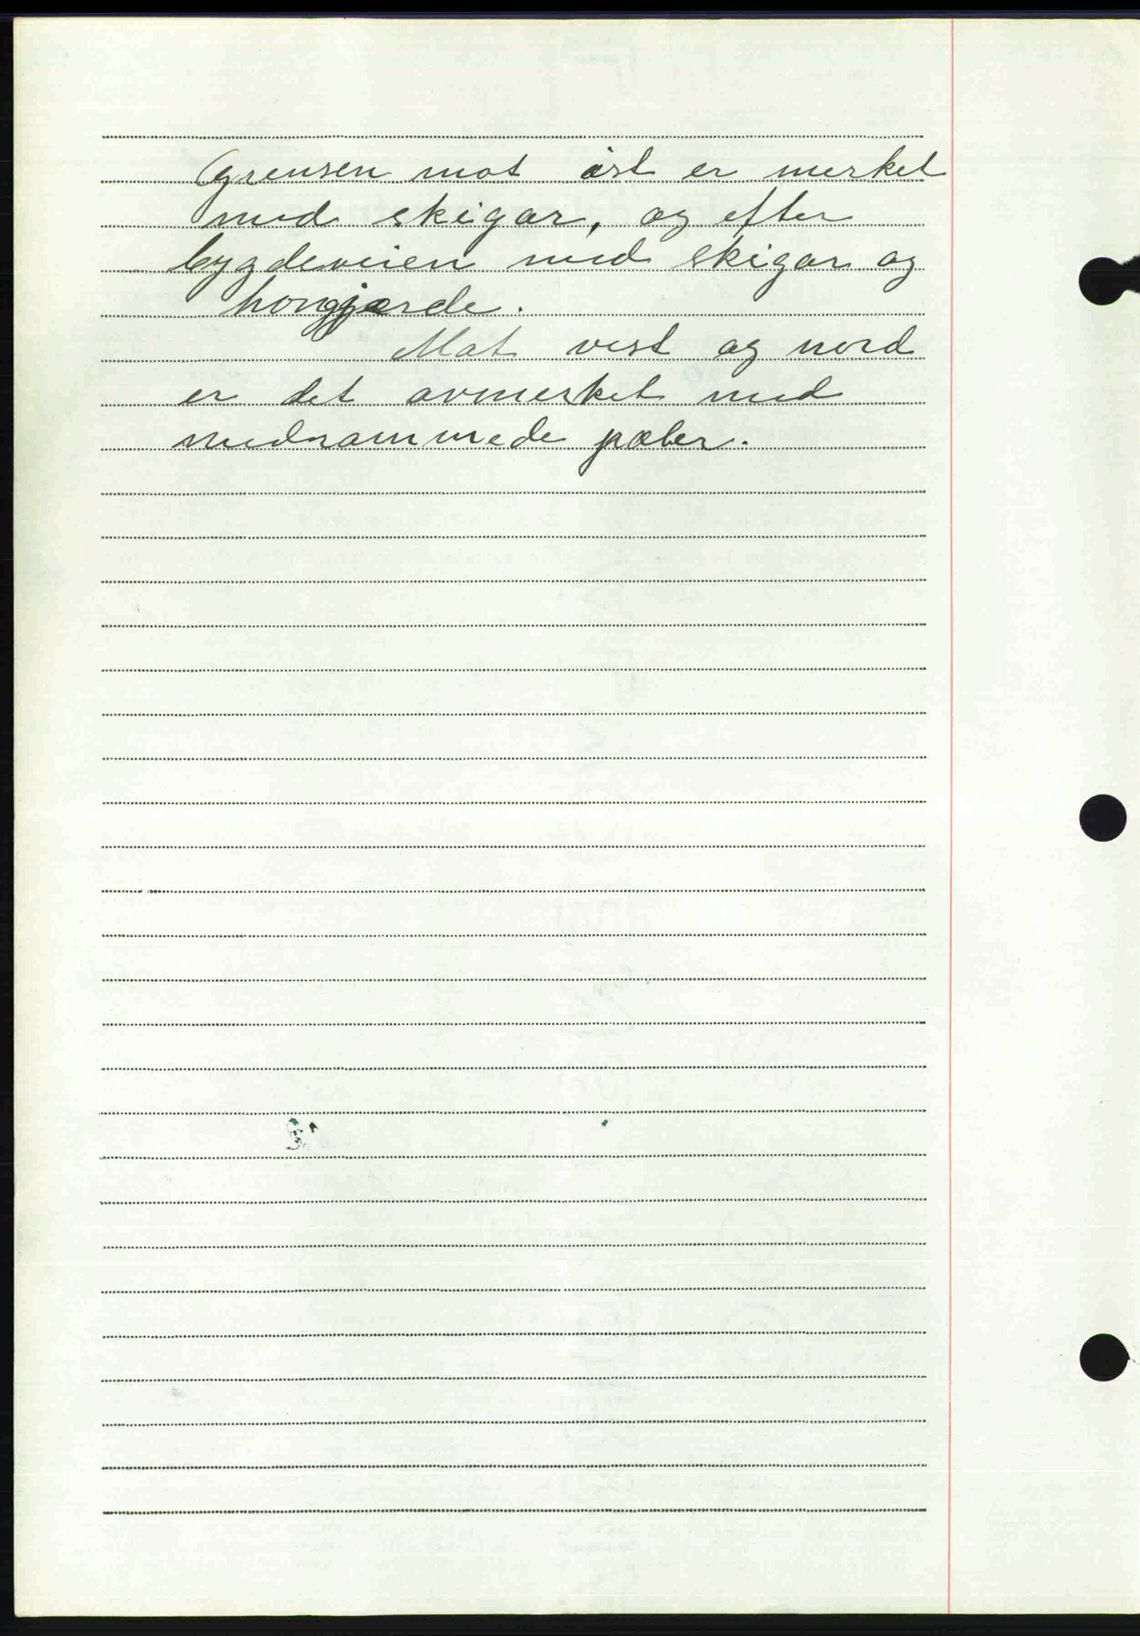 Grensen mot øst er merket
med skigar, og efter
bygdeveien med skigar og
hongjærde.
Mot vest og nord
er det avmerket med
nedrammede pæler.